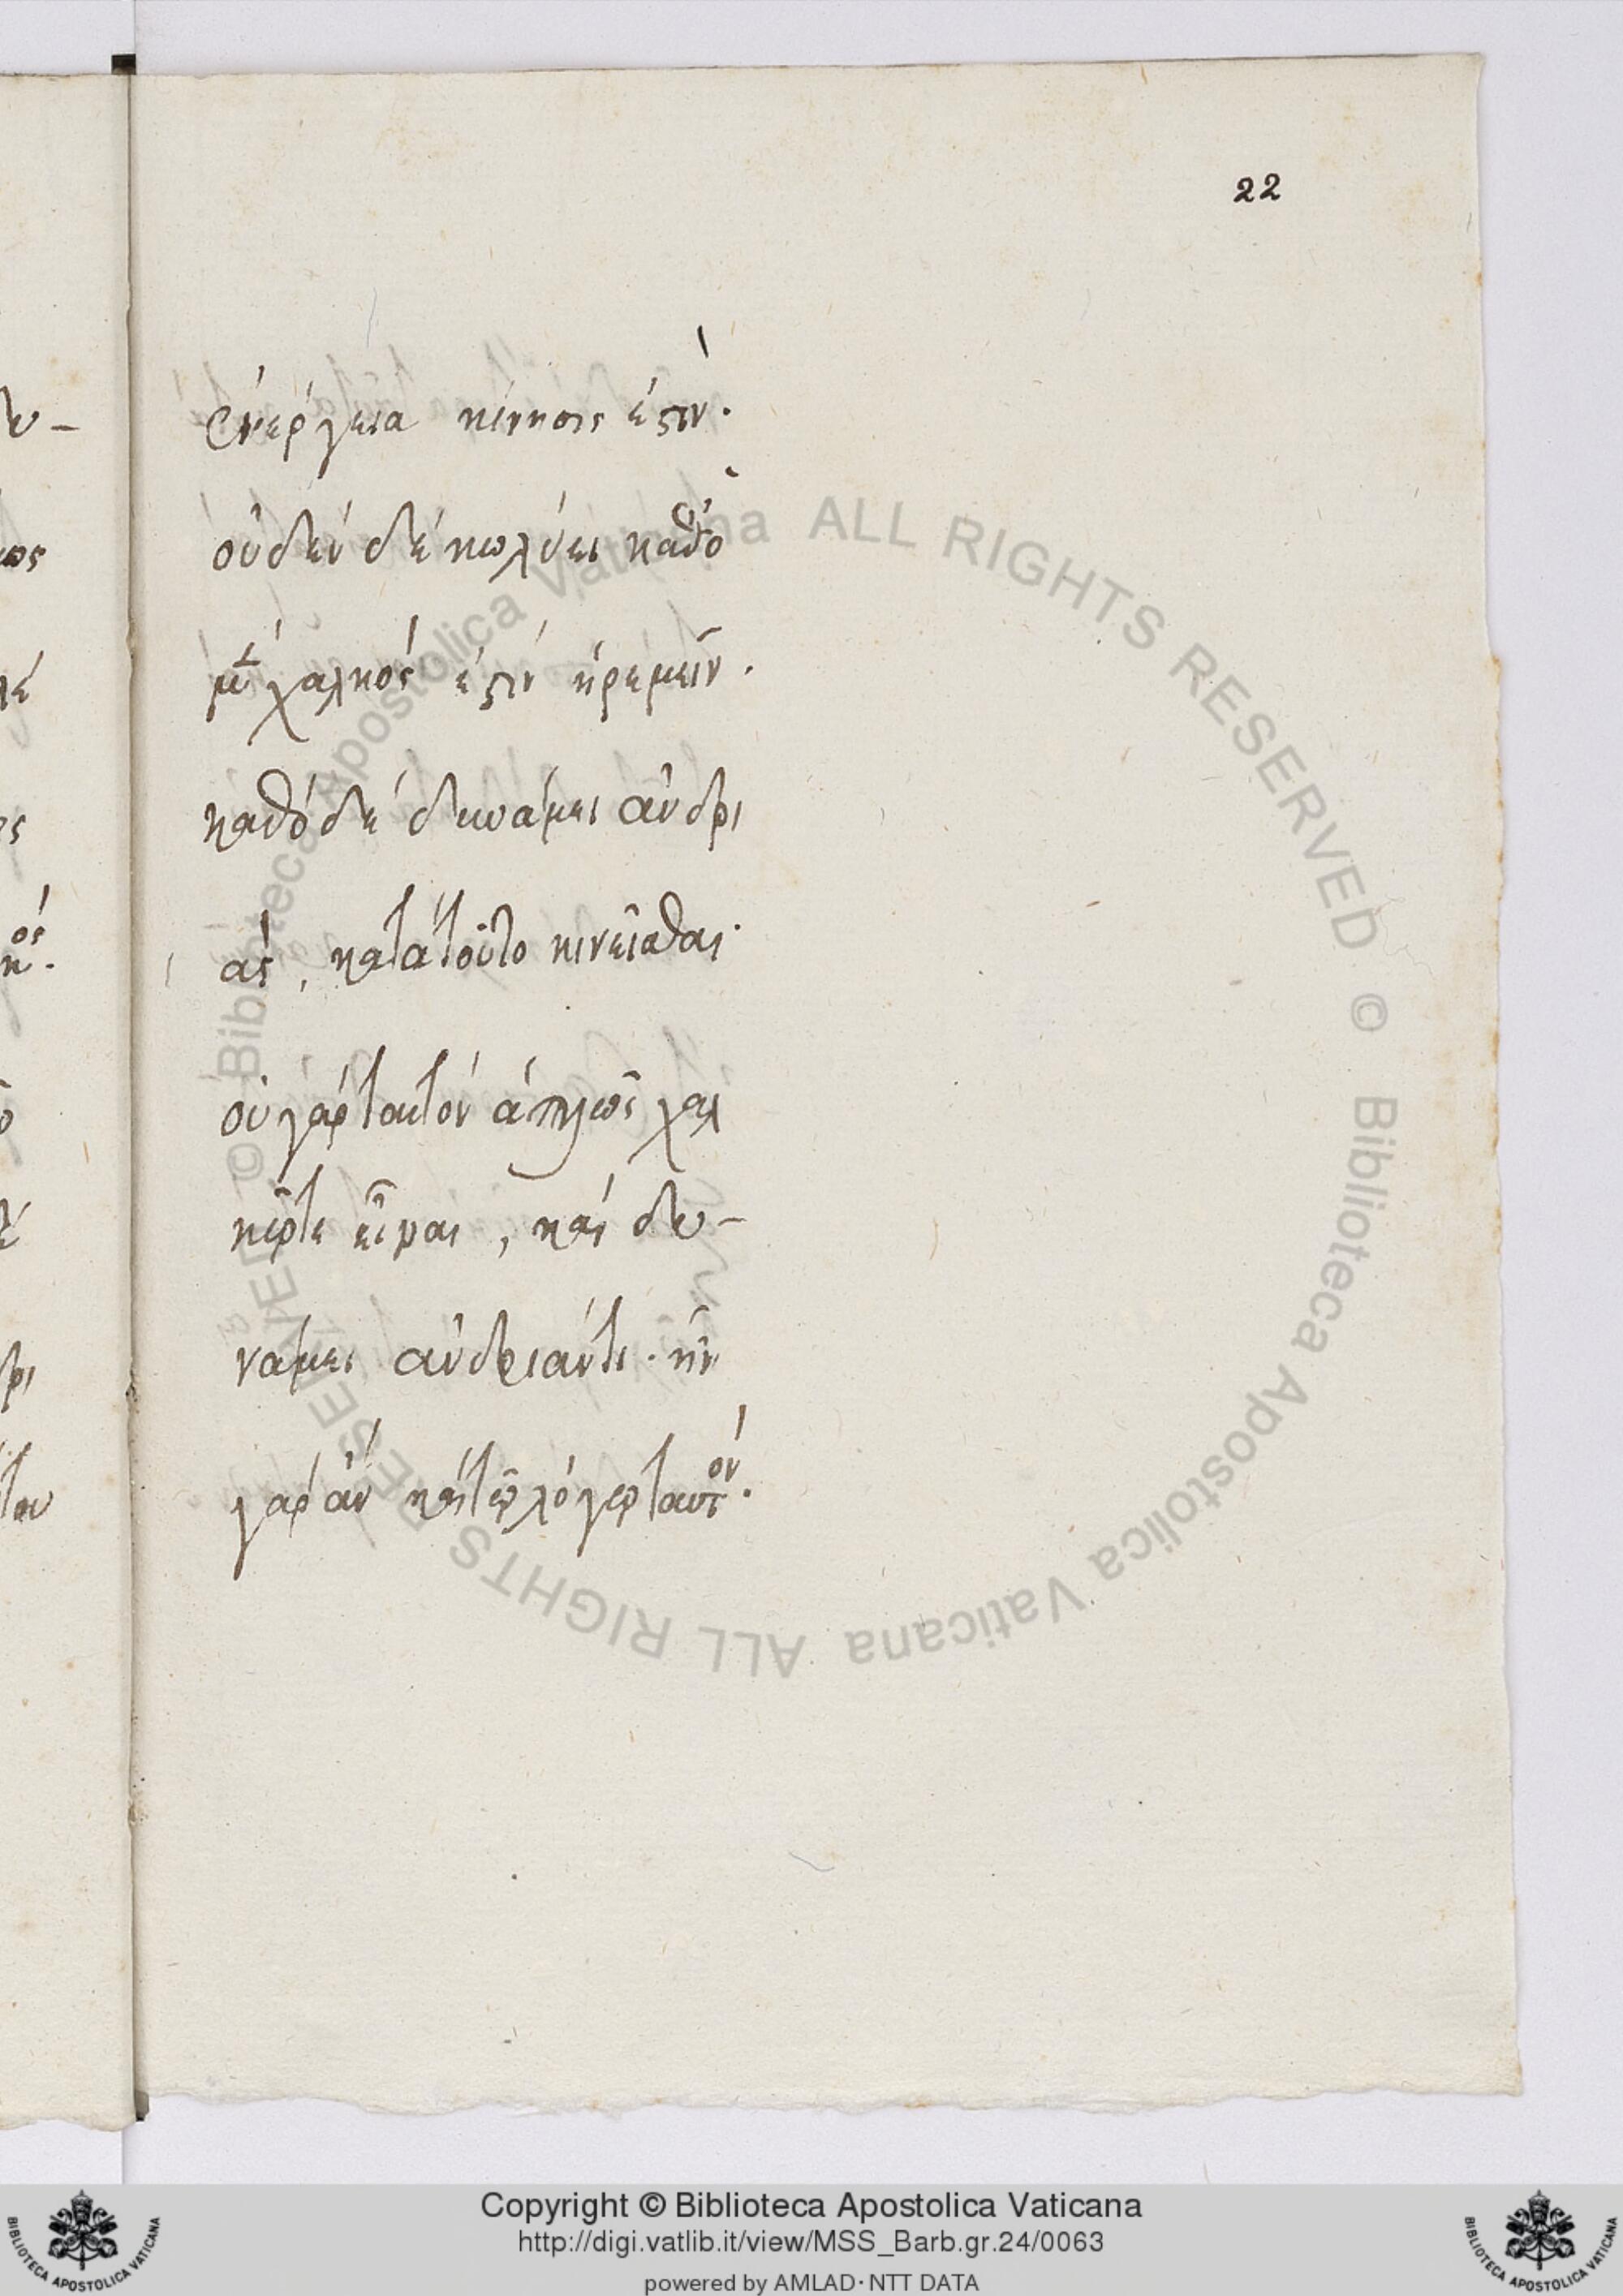 22
ἐνέργεια κίνησις ἐστὶν·
οὐδὲν δὲ κωλύει καθὸ
μὲν χαλκός ἐστιν ἠρεμεῖν.
καθὸ δὲ δυνάμει ἀνδρι
ὰς, κατὰ τοῦτο κινεῖσθαι·
οὐ γὰρ ταυτὸν ἁπλῶς χαλ
κῶ τε εἶναι, καὶ δυ-
νάμει ἀνδριάντι. ἦν
γὰρ ἂν καὶ τῶ λόγω ταυτόν.
© Biblioteca Apostolica Vaticana ALL RIGHTS RESERVED © Biblioteca Apostolica Vaticana ALL RIGHTS RESERVED
Copyright © Biblioteca Apostolica Vaticana
http://digi.vatlib.it/view/MSS_Barb.gr.24/0063
powered by AMLAD·NTT DATA
BIBLIOTECA APOSTOLICA VATICANA
BIBLIOTECA APOSTOLICA VATICANA